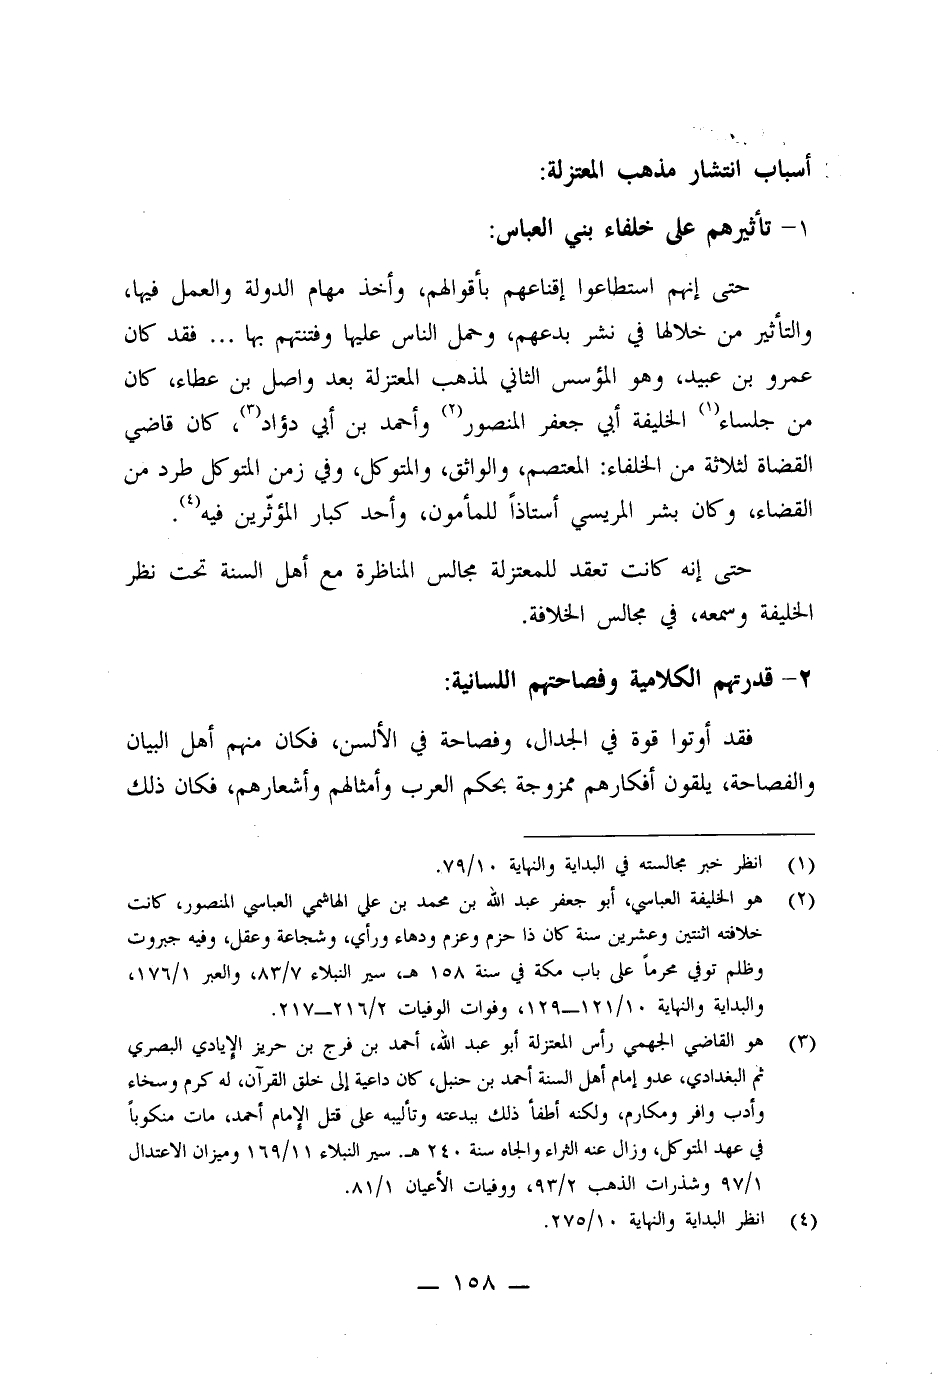 أسباب انتشار مذهب المعتزلة:
١- تأثيرهم على خلفاء بني العباس:
حتى إنهم استطاعوا إقناعهم بأقوالهم، وأخذ مهام الدولة والعمل فيها،
والتأثير من خلالها في نشر بدعهم، وحمل الناس عليها وفتنتهم بها ... فقد كان
عمرو بن عبيد، وهو المؤسس الثاني لمذهب المعتزلة بعد واصل بن عطاء، كان
من جلساء(١) الخليفة أبي جعفر المنصور(٢) وأحمد بن أبي دؤاد(٣)، كان قاضي
القضاة لثلاثة من الخلفاء: المعتصم، والواثق، والمتوكل، وفي زمن المتوكل طرد من
القضاء، وكان بشر المريسي أستاذاً للمأمون، وأحد كبار المؤثّرين فيه(٤).
حتى إنه كانت تعقد للمعتزلة مجالس المناظرة مع أهل السنة تحت نظر
الخليفة وسمعه، في مجالس الخلافة.
٢- قدرتهم الكلامية وفصاحتهم اللسانية:
فقد أوتوا قوة في الجدال، وفصاحة في الألسن، فكان منهم أهل البيان
والفصاحة، يلقون أفكارهم ممزوجة بحكم العرب وأمثالهم وأشعارهم، فكان ذلك
(١) انظر خبر مجالسته في البداية والنهاية ٧٩/١٠.
(٢) هو الخليفة العباسي، أبو جعفر عبد الله بن محمد بن علي الهاشمي العباسي المنصور، كانت
خلافته اثنتين وعشرين سنة كان ذا حزم وعزم ودهاء ورأي، وشجاعة وعقل، وفيه جبروت
وظلم توفي محرماً على باب مكة في سنة ١٥٨ هـ، سير النبلاء ٨٣/٧، والعبر ١٧٦/١،
والبداية والنهاية ١٢١/١٠—١٢٩، وفوات الوفيات ٢١٦/٢—٢١٧.
(٣) هو القاضي الجهمي رأس المعتزلة أبو عبد الله، أحمد بن فرج بن حريز الإيادي البصري
ثم البغدادي، عدو إمام أهل السنة أحمد بن حنبل، كان داعية إلى خلق القرآن، له كرم وسخاء
وأدب وافر ومكارم، ولكنه أطفأ ذلك ببدعته وتأليبه على قتل الإمام أحمد، مات منكوباً
في عهد المتوكل، وزال عنه الثراء والجاه سنة ٢٤٠ هـ. سير النبلاء ١٦٩/١١ وميزان الاعتدال
٩٧/١ وشذرات الذهب ٩٣/٢، ووفيات الأعيان ٨١/١.
(٤) انظر البداية والنهاية ٢٧٥/١٠.
— ١٥٨ —